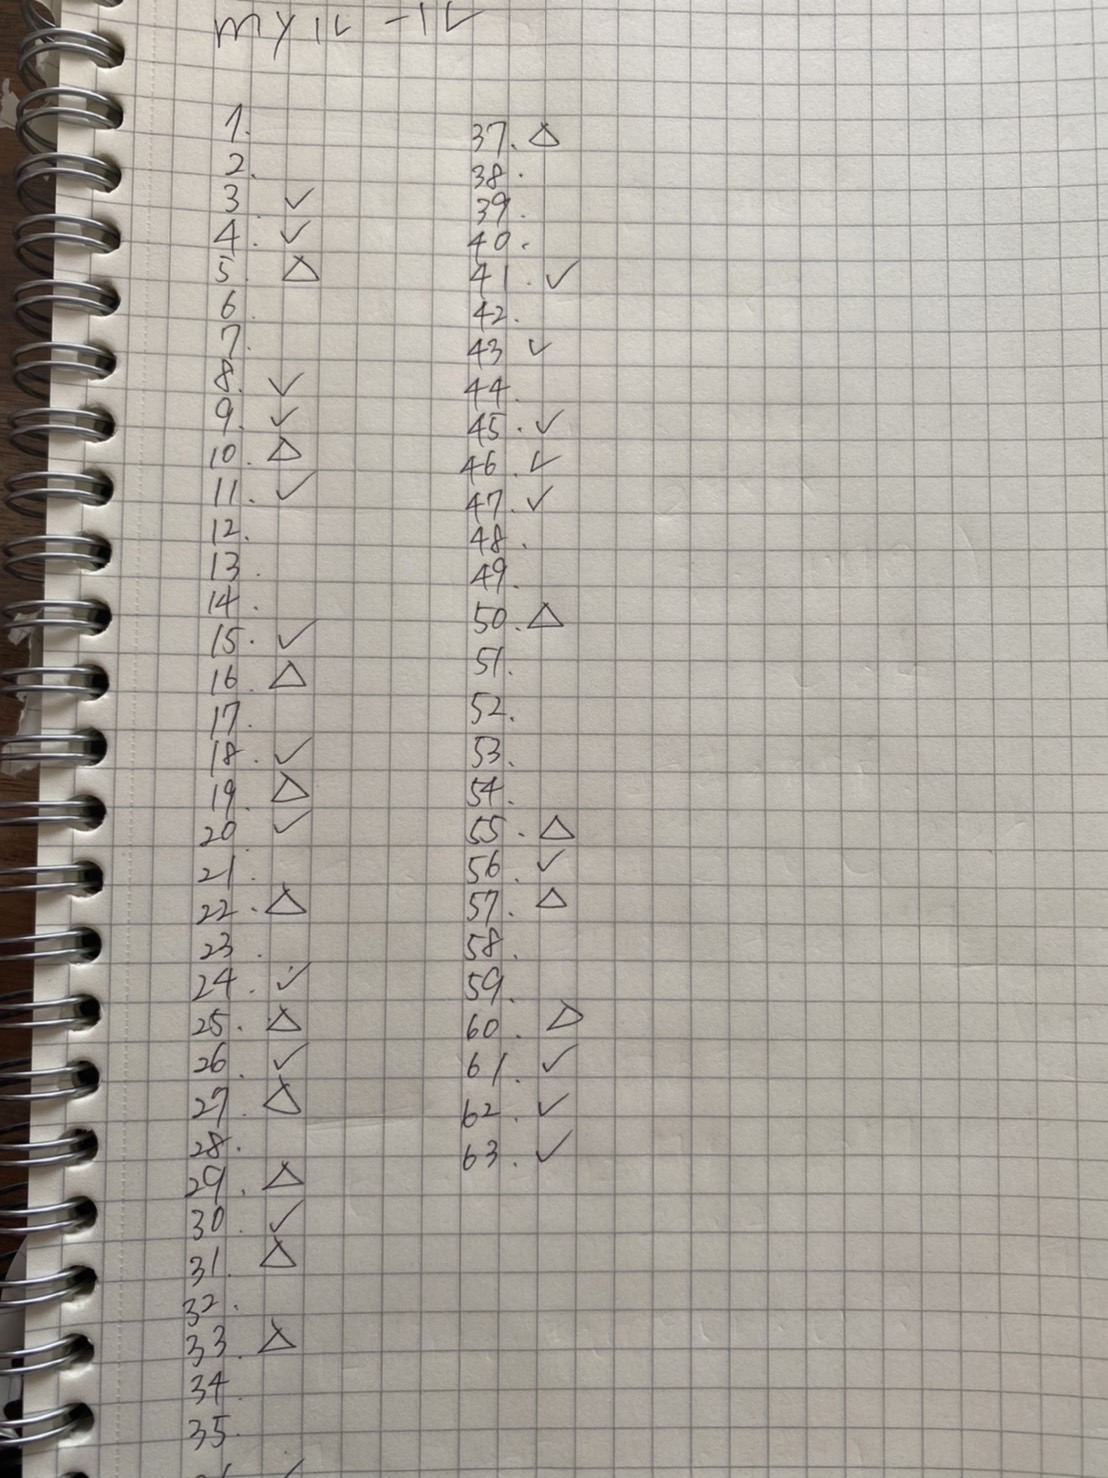 1.
2.
3. ✓
4. ✓
5. △
6.
7.
8. ✓
9. ✓
10. △
11. ✓
12.
13.
14.
15. ✓
16. △
17.
18. ✓
19. △
20. ✓
21.
22. △
23.
24. ✓
25. △
26. ✓
27. △
28.
29. △
30. ✓
31. △
32.
33. △
34.
35.
37. △
38.
39.
40.
41. ✓
42.
43 ✓
44.
45. ✓
46. ✓
47. ✓
48.
49.
50. △
51.
52.
53.
54.
55. △
56. ✓
57. △
58.
59.
60. △
61. ✓
62. ✓
63. ✓